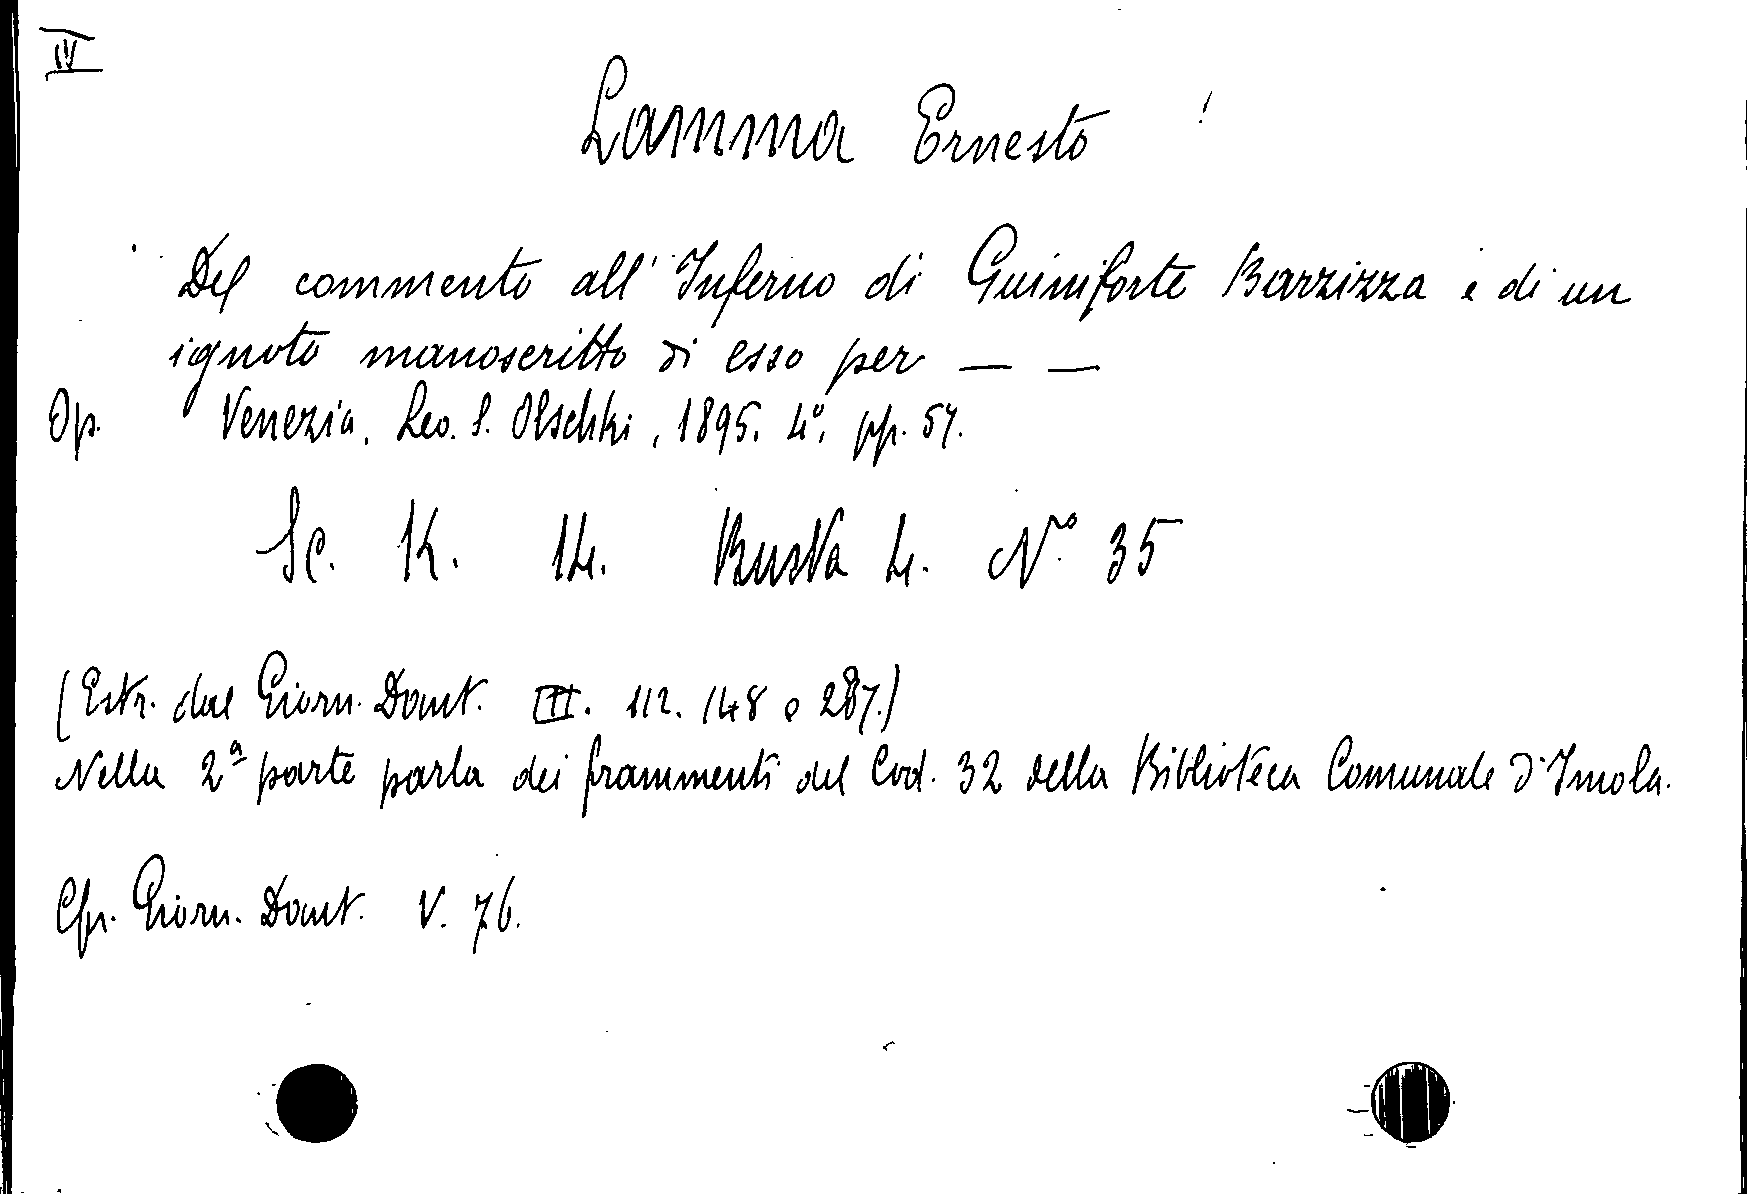 IV
Lamma Ernesto
Del commento all' Inferno di Guiniforte Barzizza e di un
ignoto manoscritto di esso per — —
Op. Venezia, Leo. S. Olschki, 1895. 4º. pp. 57.
Sc. K. 14. Busta 4. Nº 35
(Estr. dal Giorn. Dant. III. 112. 148 e 287.)
Nella 2ª parte parla dei frammenti del Cod. 32 della Biblioteca Comunale d'Imola.
Cfr. Giorn. Dant. V. 76.